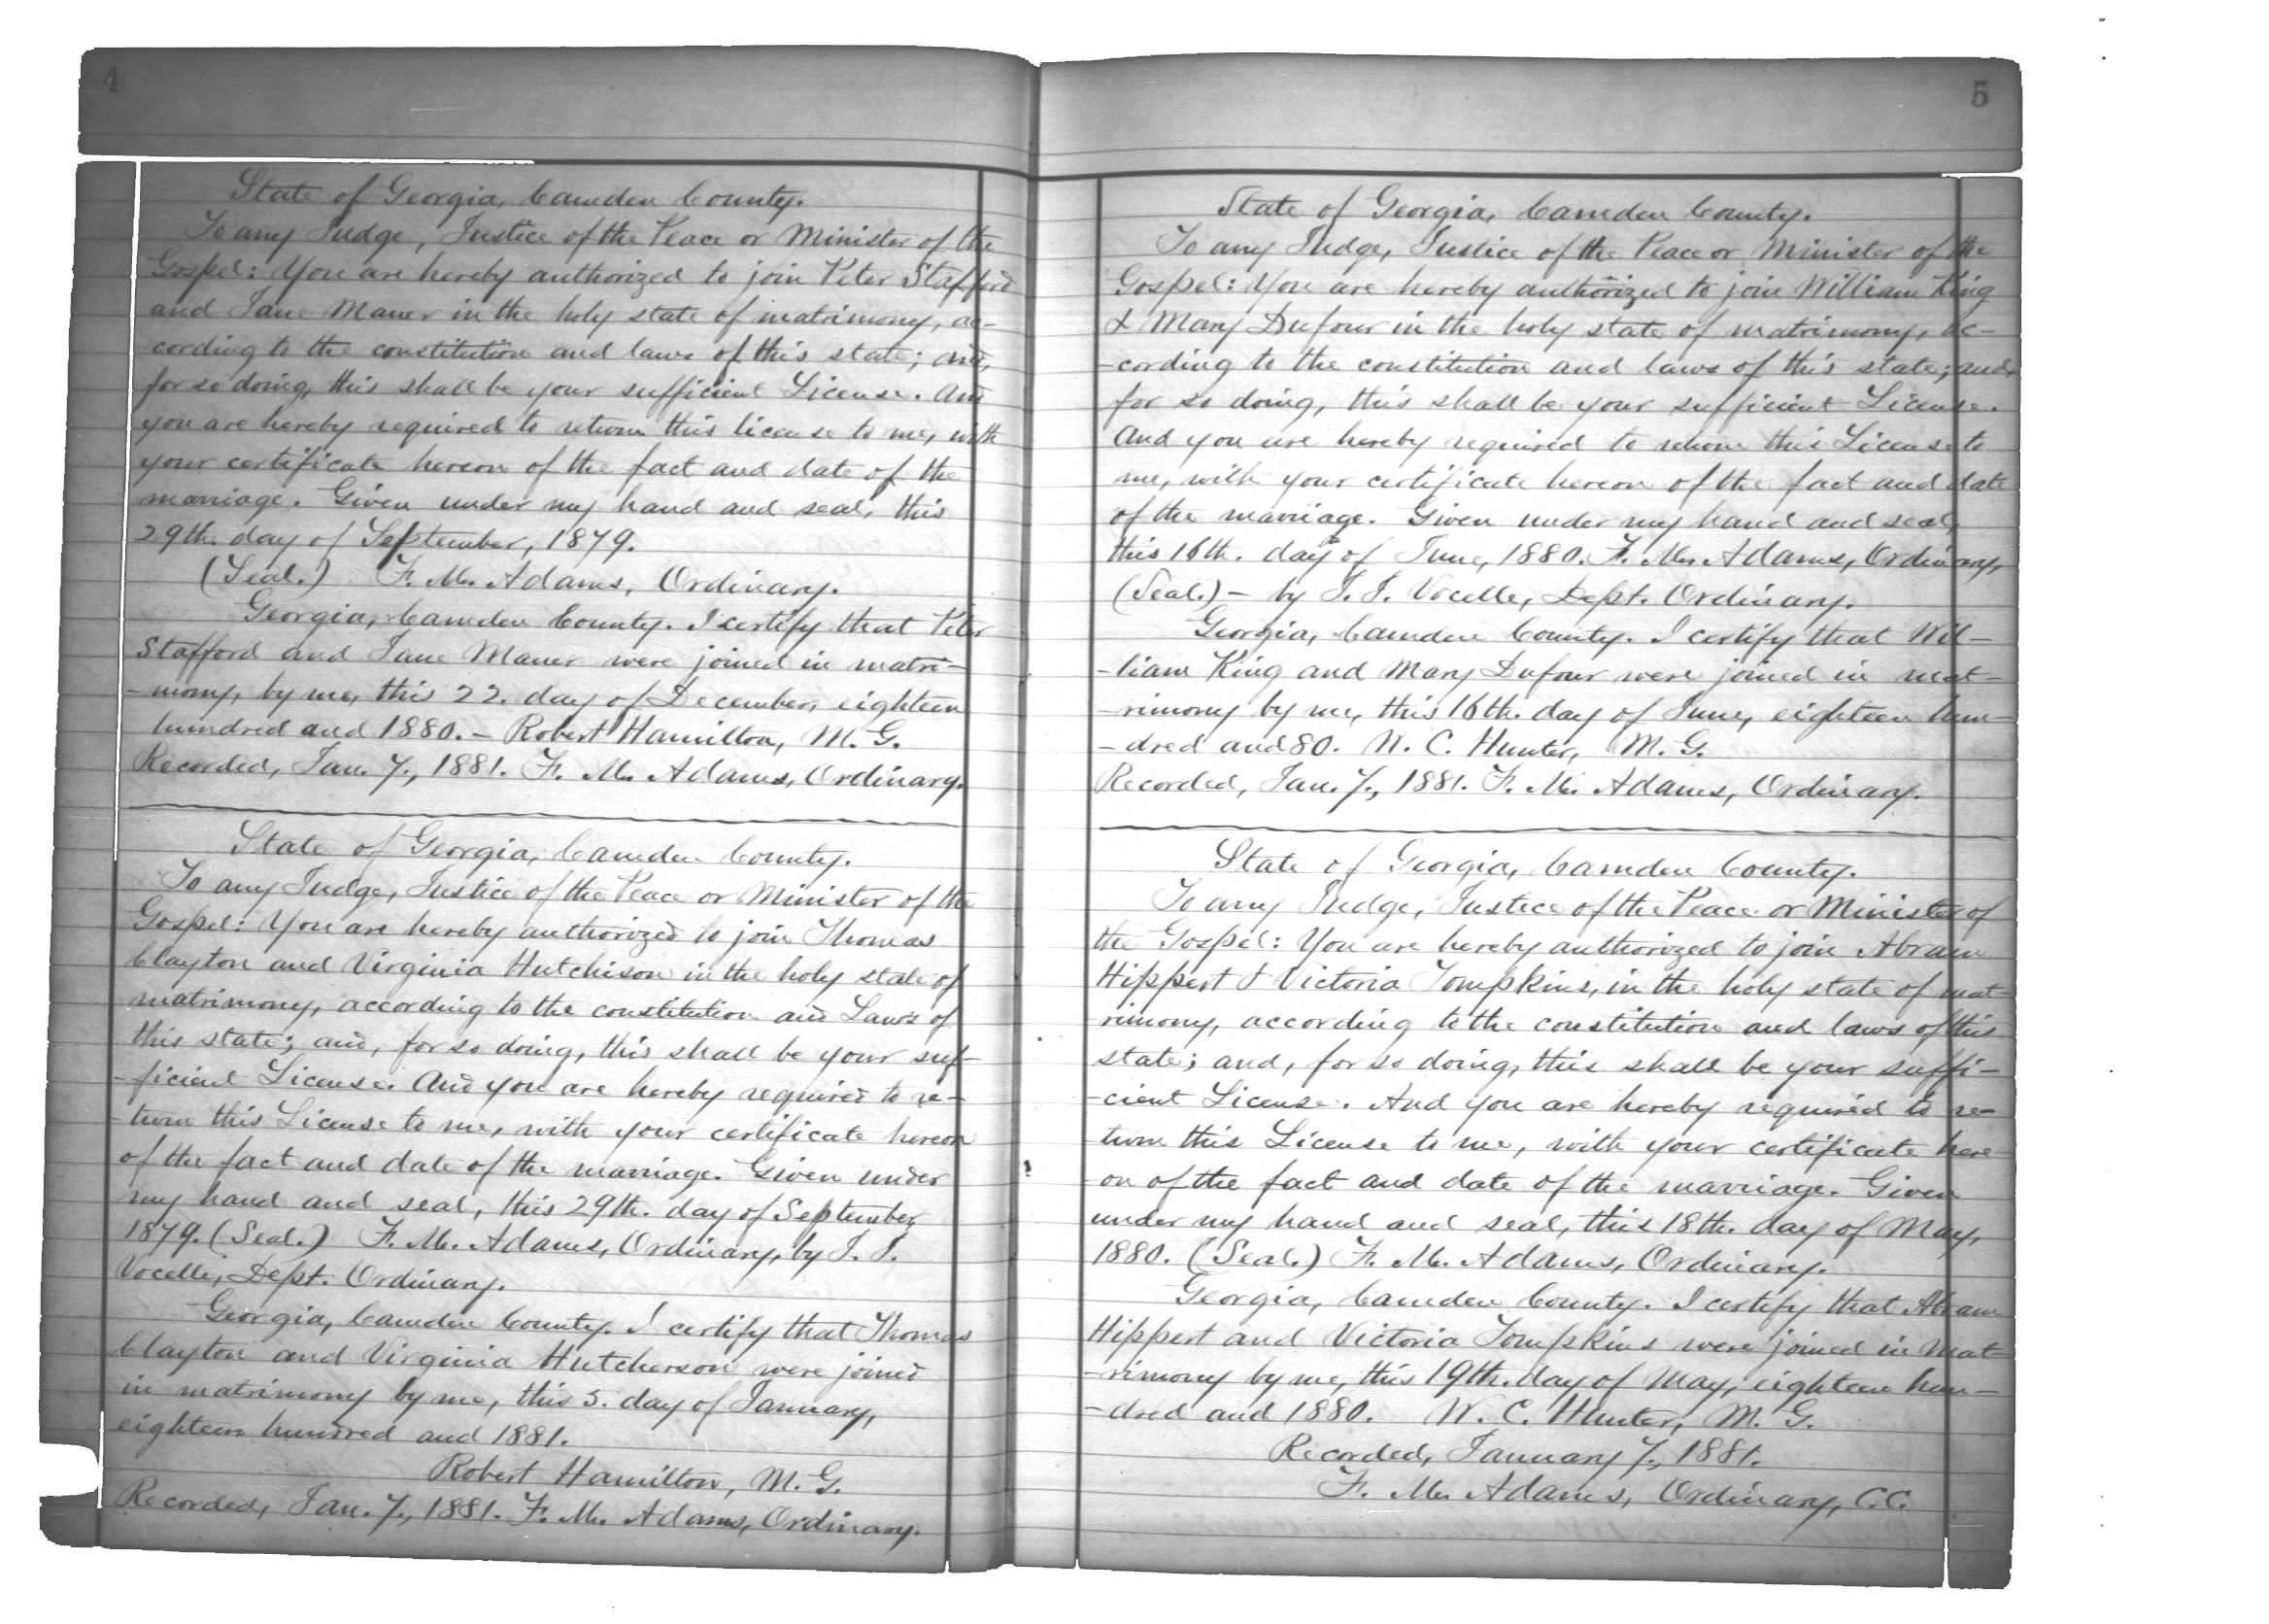 4
State of Georgia, Camden County.
To any Judge, Justice of the Peace or Minister of the
Gospel: You are hereby authorized to join Peter Stafford
and Jane Maner in the holy state of matrimony, ac-
cording to the constitution and laws of this state; and,
for so doing, this shall be your sufficient License. And
you are hereby required to return this license to me, with
your certificate hereon of the fact and date of the
marriage. Given under my hand and seal, this
29th day of September, 1879.
(Seal.) F. M. Adams, Ordinary.
Georgia, Camden County. I certify that Peter
Stafford and Jane Maner were joined in matri-
-mony, by me, this 22. day of December, eighteen
hundred and 1880. – Robert Hamilton, M. G.
Recorded, Jan. 7., 1881. F. M. Adams, Ordinary.
State of Georgia, Camden County.
To any Judge, Justice of the Peace or Minister of the
Gospel: You are hereby authorized to join Thomas
Clayton and Virginia Hutchison in the holy state of
matrimony, according to the constitution and Laws of
this state; and, for so doing, this shall be your suf-
-ficient License. And you are hereby required to re-
-turn this License to me, with your certificate hereon
of the fact and date of the marriage. Given under
my hand and seal, this 29th. day of September,
1879. (Seal.) F. M. Adams, Ordinary, by J. J.
Vocelle, Dept. Ordinary.
Georgia, Camden County. I certify that Thomas
Clayton and Virginia Hutcherson were joined
in matrimony by me, this 5. day of January,
eighteen hundred and 1881.
Robert Hamilton, M. G.
Recorded, Jan. 7., 1881. F. M. Adams, Ordinary.
5
State of Georgia, Camden County.
To any Judge, Justice of the Peace or Minister of the
Gospel: You are hereby authorized to join William King
& Mary Dufour in the holy state of matrimony, ac-
-cording to the constitution and laws of this state; and,
for so doing, this shall be your sufficient License.
And you are hereby required to return this License to
me, with your certificate hereon of the fact and date
of the marriage. Given under my hand and seal,
this 16th. day of June, 1880. F. M. Adams, Ordinary,
(Seal.) – by J. J. Vocelle, Dept. Ordinary.
Georgia, Camden County. I certify that Wil-
-liam King and Mary Dufour were joined in mat-
-rimony by me, this 16th. day of June, eighteen hun-
-dred and 80. W. C. Hunter, M. G.
Recorded, Jan. 7., 1881. F. M. Adams, Ordinary.
State of Georgia, Camden County.
To any Judge, Justice of the Peace or Minister of
the Gospel: You are hereby authorized to join Abram
Hippert & Victoria Tompkins, in the holy state of mat-
rimony, according to the constitution and laws of this
state; and, for so doing, this shall be your suffi-
-cient License. And you are hereby required to re-
-turn this License to me, with your certificate here-
-on of the fact and date of the marriage. Given
under my hand and seal, this 18th. day of May,
1880. (Seal.) F. M. Adams, Ordinary.
Georgia, Camden County. I certify that Abram
Hippert and Victoria Tompkins were joined in mat-
-rimony by me, this 19th. day of May, eighteen hun-
-dred and 1880. W. C. Hunter, M. G.
Recorded, January 7., 1881.
F. M. Adams, Ordinary, C.C.